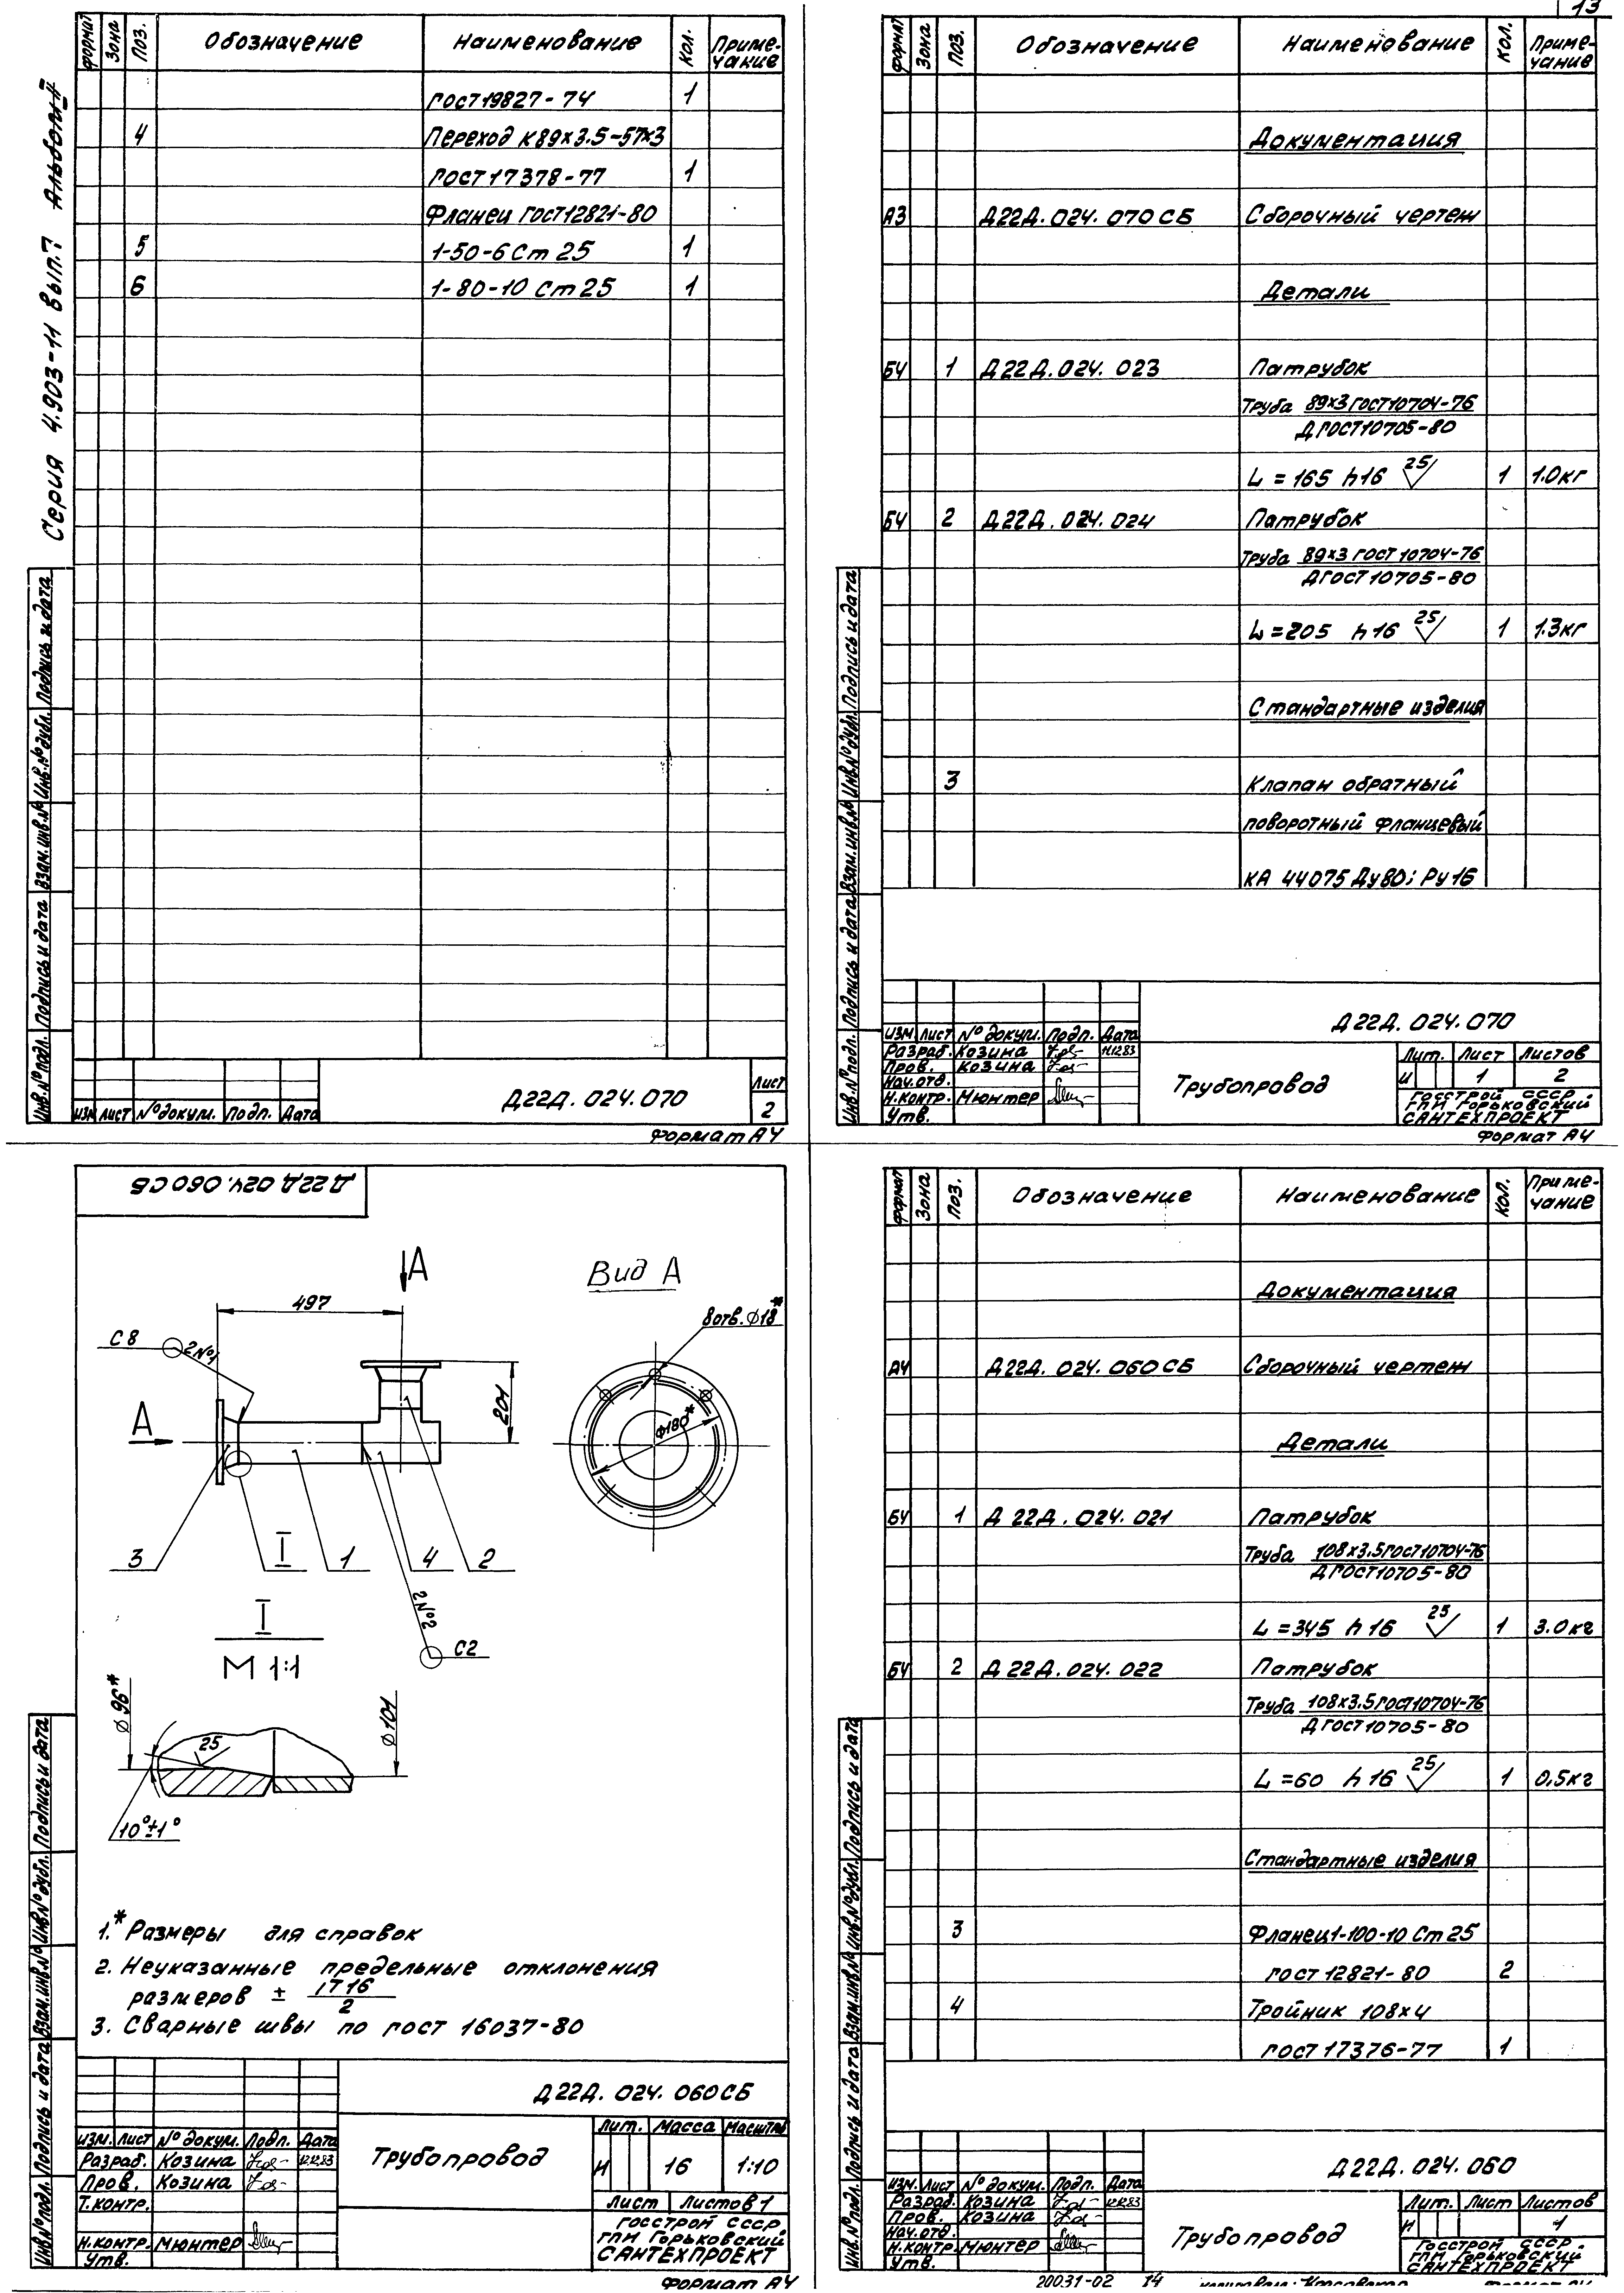 Серия 4.903-11 Вып.7 Альбом II
Формат Зона Поз. Обозначение Наименование Кол. Приме-
чание
ГОСТ 19827-74 1
4 Переход К89×3.5-57×3
ГОСТ 17378-77 1
Фланец ГОСТ 12821-80
5 1-50-6 Ст 25 1
6 1-80-10 Ст 25 1
Инв.№ подл. Подпись и дата Взам.инв.№ Инв.№ дубл. Подпись и дата
Изм Лист № докум. Подп. Дата
Д22Д.024.070
Лист
2
Формат А4
13
Формат Зона Поз. Обозначение Наименование Кол. Приме-
чание
Документация
А3 Д22Д.024.070СБ Сборочный чертеж
Детали
БЧ 1 Д22Д.024.023 Патрубок
Труба 89×3 ГОСТ 10704-76
Д ГОСТ 10705-80
L=165 h16 25 1 1.0кг
БЧ 2 Д22Д.024.024 Патрубок
Труба 89×3 ГОСТ 10704-76
Д ГОСТ 10705-80
L=205 h16 25 1 1.3кг
Стандартные изделия
3 Клапан обратный
поворотный фланцевый
КА 44075 Ду80; Ру16
Инв.№ подл. Подпись и дата Взам.инв.№ Инв.№ дубл. Подпись и дата
Д22Д.024.070
Изм Лист № докум. Подп. Дата
Разраб. Козина 14.12.83
Пров. Козина
Нач.отд.
Н.контр. Мюнтер
Утв.
Трубопровод
Лит. Лист Листов
И 1 2
Госстрой СССР
ГПИ Горьковский
САНТЕХПРОЕКТ
Формат А4
Д22Д.024.060СБ
А
497
С8
2 №1
А
201
Вид А
8отв.⌀18*
⌀180*
3 I 1 4 2
2 №2
С2
I
М 1:1
⌀96*
25
⌀101
10°±1°
1.* Размеры для справок
2. Неуказанные предельные отклонения
размеров ± IT16
2
3. Сварные швы по ГОСТ 16037-80
Инв.№ подл. Подпись и дата Взам.инв.№ Инв.№ дубл. Подпись и дата
Д22Д.024.060СБ
Изм. Лист № докум. Подп. Дата
Разраб. Козина 12.12.83
Пров. Козина
Т.контр.
Н.контр. Мюнтер
Утв.
Трубопровод
Лит. Масса Масштаб
И 16 1:10
Лист Листов 1
Госстрой СССР
ГПИ Горьковский
САНТЕХПРОЕКТ
Формат А4
Формат Зона Поз. Обозначение Наименование Кол. Приме-
чание
Документация
А4 Д22Д.024.060СБ Сборочный чертеж
Детали
БЧ 1 Д22Д.024.021 Патрубок
Труба 108×3.5 ГОСТ 10704-76
Д ГОСТ 10705-80
L=345 h16 25 1 3.0кг
БЧ 2 Д22Д.024.022 Патрубок
Труба 108×3.5 ГОСТ 10704-76
Д ГОСТ 10705-80
L=60 h16 25 1 0,5кг
Стандартные изделия
3 Фланец 1-100-10 Ст 25
ГОСТ 12821-80 2
4 Тройник 108×4
ГОСТ 17376-77 1
Инв.№ подл. Подпись и дата Взам.инв.№ Инв.№ дубл. Подпись и дата
Д22Д.024.060
Изм. Лист № докум. Подп. Дата
Разраб. Козина 12.12.83
Пров. Козина
Нач.отд.
Н.контр. Мюнтер
Утв.
Трубопровод
Лит. Лист Листов
И 1
Госстрой СССР
ГПИ Горьковский
САНТЕХПРОЕКТ
20031-02 14